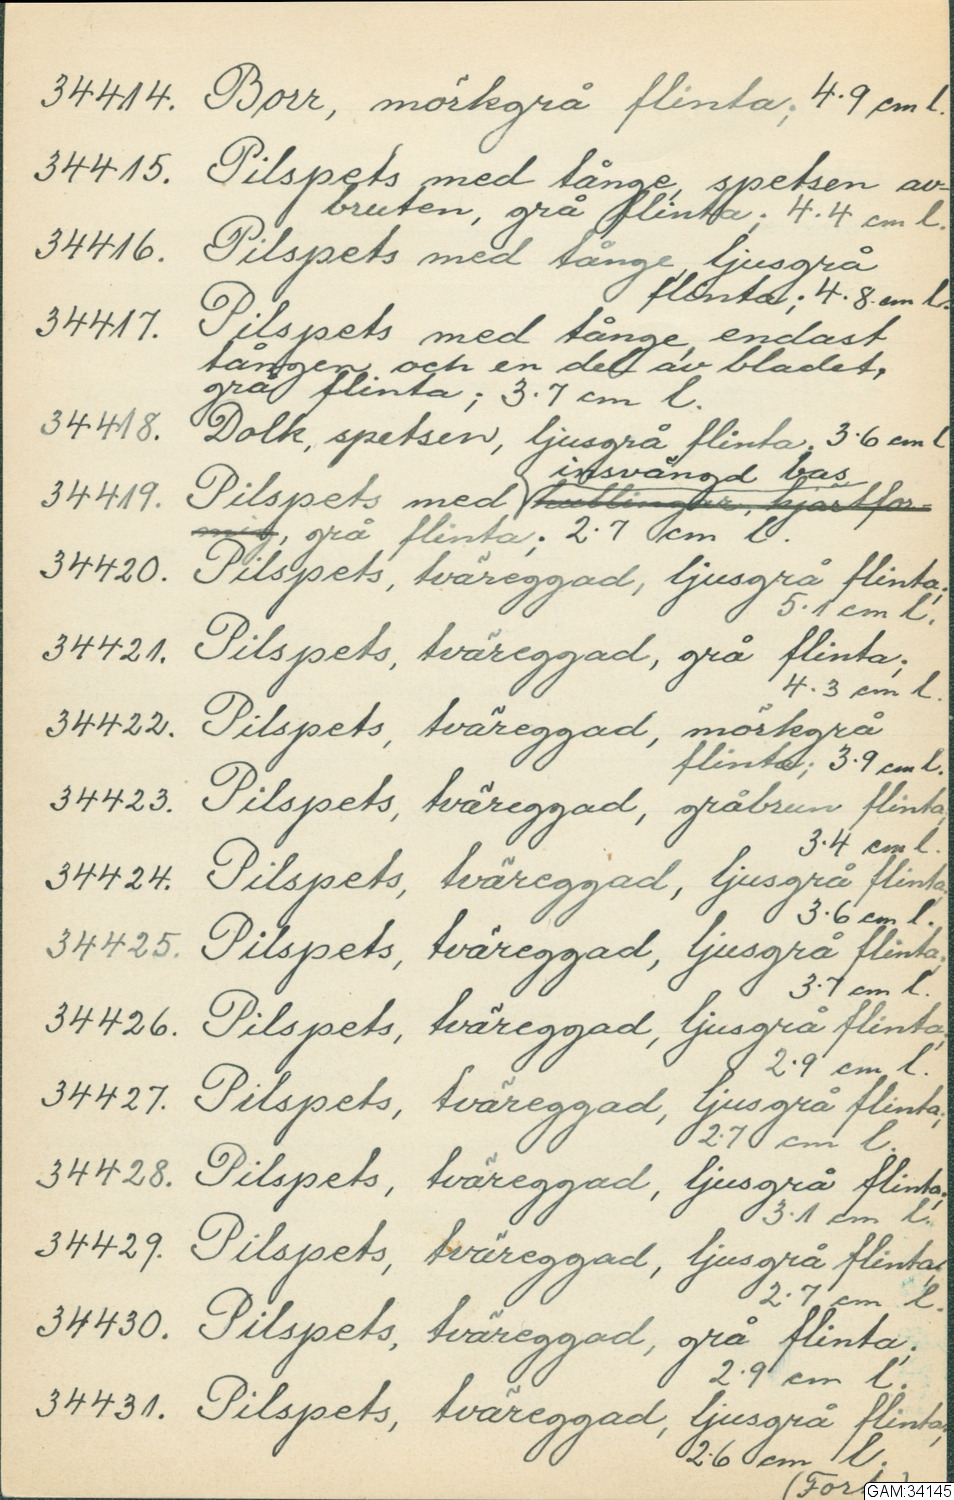 34414. Borr, mörkgrå flinta; 4.9 cm l.
34415. Pilspets med tånge, spetsen av-
bruten, grå flinta; 4.4 cm l.
34416. Pilspets med tånge, ljusgrå
flinta; 4.8 cm l.
34417. Pilspets med tånge, endast
tången och en del av bladet,
grå flinta; 3.7 cm l.
34418. Dolk, spetsen, ljusgrå flinta. 3.6 cm l
insvängd bas
34419. Pilspets med hullingar, hjärtfor-
mig, grå flinta; 2.7 cm l.
34420. Pilspets, tväreggad, ljusgrå flinta;
5.1 cm l.
34421. Pilspets, tväreggad, grå flinta;
4.3 cm l.
34422. Pilspets, tväreggad, mörkgrå
flinta; 3.9 cm l.
34423. Pilspets, tväreggad, gråbrun flinta,
3.4 cm l.
34424. Pilspets, tväreggad, ljusgrå flinta;
3.6 cm l.
34425. Pilspets, tväreggad, ljusgrå flinta;
3.7 cm l.
34426. Pilspets, tväreggad, ljusgrå flinta;
2.9 cm l.
34427. Pilspets, tväreggad, ljusgrå flinta;
2.7 cm l.
34428. Pilspets, tväreggad, ljusgrå flinta;
3.1 cm l.
34429. Pilspets, tväreggad, ljusgrå flinta;
2.7 cm l.
34430. Pilspets, tväreggad, grå flinta;
2.9 cm l.
34431. Pilspets, tväreggad, ljusgrå flinta;
2.6 cm l.
GAM:34145